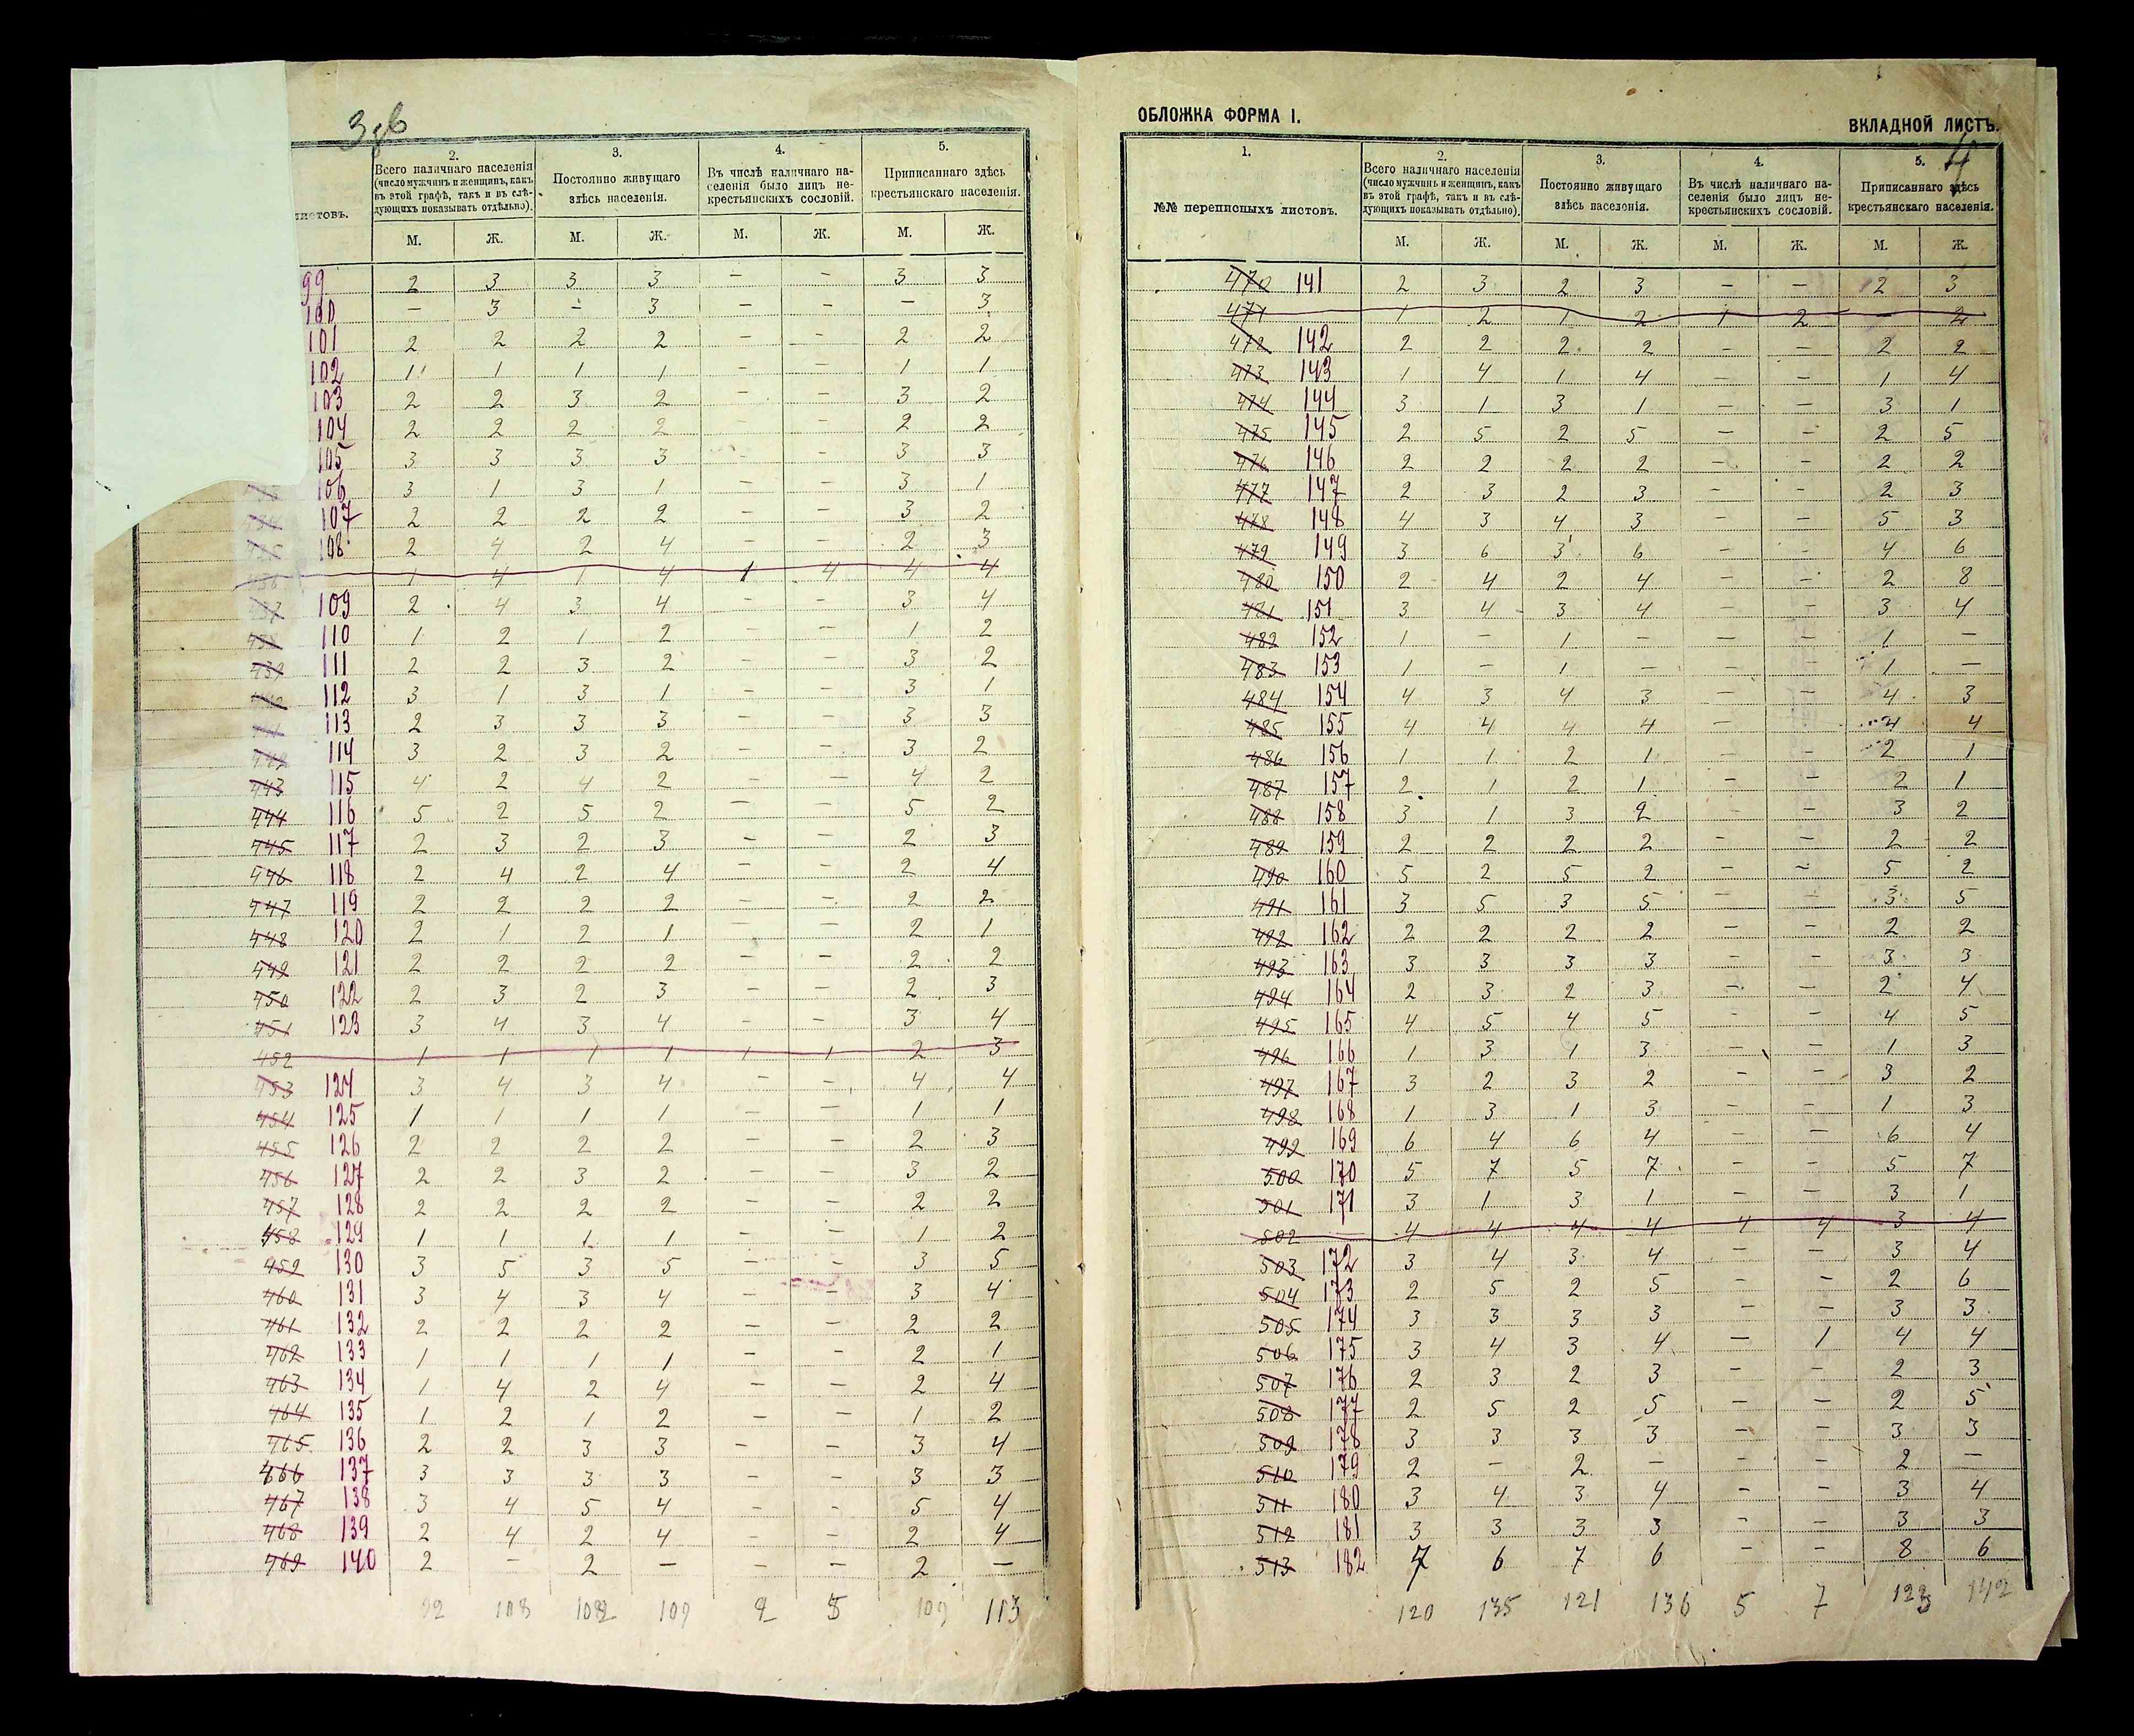 3об
2. 3. 4. 5.
листовъ. Всего наличнаго населенія (число мужчинъ и женщинъ, какъ въ этой графѣ, такъ и въ слѣдующихъ показывать отдѣльно). Постоянно живущаго здѣсь населенія. Въ числѣ наличнаго населенія было лицъ некрестьянскихъ сословій. Приписаннаго здѣсь крестьянскаго населенія.
М. Ж. М. Ж. М. Ж. М. Ж.
99 2 3 3 3 – – 3 3
100 – 3 – 3 – – – 3
101 2 2 2 2 – – 2 2
102 1 1 1 1 – – 1 1
103 2 2 3 2 – – 3 2
104 2 2 2 2 – – 2 2
105 3 3 3 3 – – 3 3
106 3 1 3 1 – – 3 1
107 2 2 2 2 – – 3 2
108 2 4 2 4 – – 2 3
436 1 4 1 4 1 4 4 4
437 109 2 4 3 4 – – 3 4
438 110 1 2 1 2 – – 1 2
439 111 2 2 3 2 – – 3 2
112 3 1 3 1 – – 3 1
113 2 3 3 3 – – 3 3
442 114 3 2 3 2 – – 3 2
443 115 4 2 4 2 – – 4 2
444 116 5 2 5 2 – – 5 2
445 117 2 3 2 3 – – 2 3
446 118 2 4 2 4 – – 2 4
447 119 2 2 2 2 – – 2 2
448 120 2 1 2 1 – – 2 1
449 121 2 2 2 2 – – 2 2
450 122 2 3 2 3 – – 2 3
451 123 3 4 3 4 – – 3 4
452 1 1 1 1 1 1 2 3
453 124 3 4 3 4 – – 4 4
454 125 1 1 1 1 – – 1 1
455 126 2 2 2 2 – – 2 3
456 127 2 2 3 2 – – 3 2
457 128 2 2 2 2 – – 2 2
458 129 1 1 1 1 – – 1 2
459 130 3 5 3 5 – – 3 5
460 131 3 4 3 4 – – 3 4
461 132 2 2 2 2 – – 2 2
462 133 1 1 1 1 – – 2 1
463 134 1 4 2 4 – – 2 4
464 135 1 2 1 2 – – 1 2
465 136 2 2 3 3 – – 3 4
466 137 3 3 3 3 – – 3 3
467 138 3 4 5 4 – – 5 4
468 139 2 4 2 4 – – 2 4
469 140 2 – 2 – – – 2 –
92 108 102 109 2 5 109 113
ОБЛОЖКА ФОРМА I.
ВКЛАДНОЙ ЛИСТЪ.
4
1. 2. 3. 4. 5.
№№ переписныхъ листовъ. Всего наличнаго населенія (число мужчинъ и женщинъ, какъ въ этой графѣ, такъ и въ слѣдующихъ показывать отдѣльно). Постоянно живущаго здѣсь населенія. Въ числѣ наличнаго населенія было лицъ некрестьянскихъ сословій. Приписаннаго здѣсь крестьянскаго населенія.
М. Ж. М. Ж. М. Ж. М. Ж.
470 141 2 3 2 3 – – 2 3
471 1 2 1 2 1 2 – 2
472 142 2 2 2 2 – – 2 2
473 143 1 4 1 4 – – 1 4
474 144 3 1 3 1 – – 3 1
475 145 2 5 2 5 – – 2 5
476 146 2 2 2 2 – – 2 2
477 147 2 3 2 3 – – 2 3
478 148 4 3 4 3 – – 5 3
479 149 3 6 3 6 – – 4 6
480 150 2 4 2 4 – – 2 8
481 151 3 4 3 4 – – 3 4
482 152 1 – 1 – – – 1 –
483 153 1 – 1 – – – 1 –
484 154 4 3 4 3 – – 4 3
485 155 4 4 4 4 – 4 4
486 156 1 1 2 1 – – 2 1
487 157 2 1 2 1 – – 2 1
488 158 3 1 3 2 – – 3 2
489 159 2 2 2 2 – – 2 2
490 160 5 2 5 2 – – 5 2
491 161 3 5 3 5 – – 3 5
492 162 2 2 2 2 – – 2 2
493 163 3 3 3 3 – – 3 3
494 164 2 3 2 3 – – 2 4
495 165 4 5 4 5 – – 4 5
496 166 1 3 1 3 – – 1 3
497 167 3 2 3 2 – – 3 2
498 168 1 3 1 3 – – 1 3
499 169 6 4 6 4 – – 6 4
500 170 5 7 5 7 – – 5 7
501 171 3 1 3 1 – – 3 1
502 4 4 4 4 4 4 3 4
503 172 3 4 3 4 – – 3 4
504 173 2 5 2 5 – – 2 6
505 174 3 3 3 3 – – 3 3
506 175 3 4 3 4 – 1 4 4
507 176 2 3 2 3 – – 2 3
508 177 2 5 2 5 – – 2 5
509 178 3 3 3 3 – – 3 3
510 179 2 – 2 – – – 2 –
511 180 3 4 3 4 – – 3 4
512 181 3 3 3 3 – – 3 3
513 182 7 6 7 6 – – 8 6
120 135 121 136 5 7 123 142